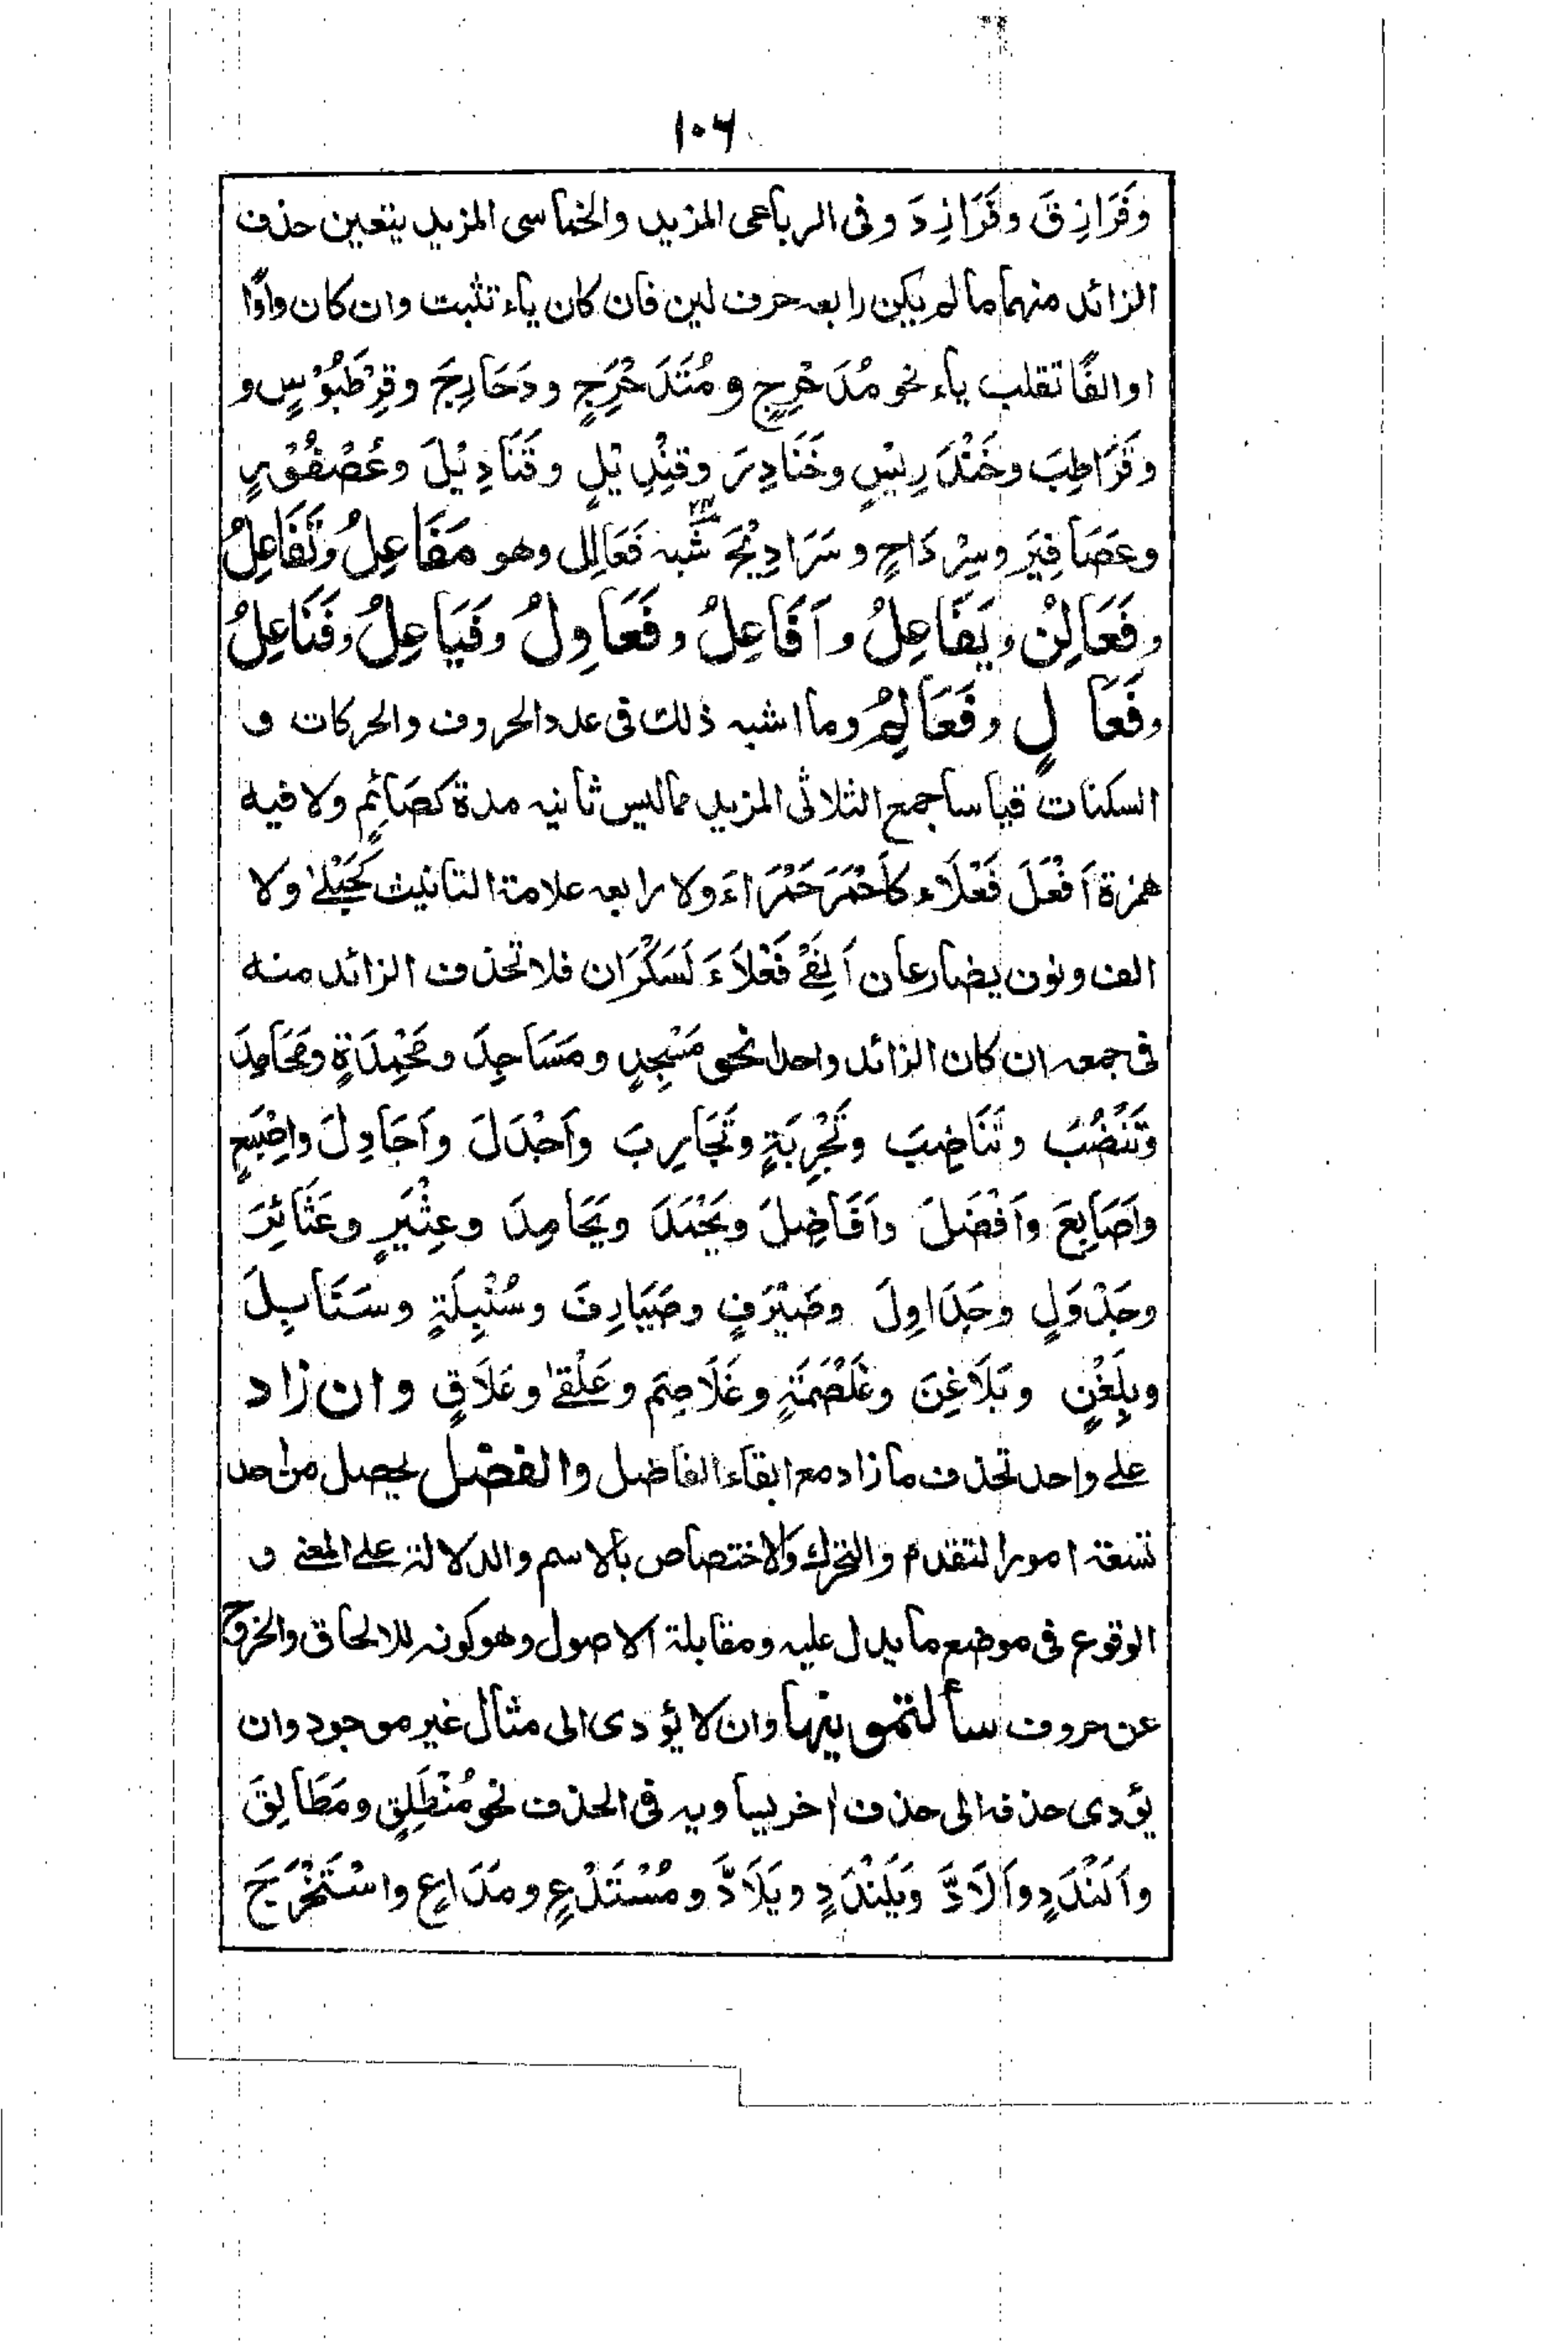 ١٠٦
وفَرَازِقَ وفَرَازِدَ وفى الرباعى المزيد والخماسى المزيد يتعين حذف
الزائد منهما ما لم يكن رابعه حرف لين فان كان ياء تثبت وان كان واوًا
او الفًا تقلب ياء نحو مُدَحْرِجٍ و مُتَدَحْرِجٍ و دَحَارِجَ وقِرْطَبُوْسٍ و
وقَرَاطِبَ وخَنْدَرِيْسٍ وخَنَادِرَ وقِنْدِيْلٍ وقَنَادِيْلَ وعُصْفُوْرٍ
وعَصَافِيَر وسِرْدَاحٍ و سَرَادِيْحَ شبه فَعَالِل وهو مَفَاعِلُ وتَفَاعِلُ
وفَعَالِنْ ويَفَاعِلُ و اَفَاعِلُ وفَعَاوِلُ وفَيَاعِلُ وفَنَاعِلُ
وفَعَالٍ وفَعَالِمُ وما اشبه ذلك فى عدد الحروف والحركات و
السكنات قياسا جمع الثلاثى المزيد مما ليس ثانيه مدة كصَائِمٍ ولا فيه
همزة اَفْعَلَ فَعْلَاء كاَحْمَرَ حَمْرَاءَ ولا رابعه علامة التانيث كَحُبْلىٰ ولا
الف ونون يضارعان اَلِفَيْ فَعْلَاءَ لَسَكْرَان فلا تحذف الزائد منه
فى جمعه ان كان الزائد واحدا نحو مَسْجِدٍ و مَسَاجِدَ ومَحْمِدَةٍ ومَحَامِدَ
وتَنْضُبَ وتَنَاضِبَ وتَجْرِبَةٍ وتَجَارِبَ واَجْدَلَ واَجَادِلَ واِصْبَعٍ
واَصَابِعَ واَفْضَلَ واَفَاضِلَ ويَحْمَدَ ويَحَامِدَ وعِثْيَرٍ وعَثَائِرَ
وجَدْوَلٍ وجَدَاوِلَ وصَيْرَفٍ وصَيَارِفَ وسُنْبِلَةٍ وسَنَابِلَ
وبِلَغْنٍ وبَلَاغِنَ وغَلْصَمَةٍ وغَلَاصِمَ وعَلْقىٰ وعَلَاقٍ وان زاد
على واحد تحذف ما زاد مع ابقاء الفاضل والفضل يحصل من احد
تسعة امور التقدم والتحرك والاختصاص بالاسم والدلالة على المعنى و
الوقوع فى موضع ما يدل عليه ومقابلة الاصول وهو كونه للالحاق والخروج
عن حروف سألتمونيها وان لا يؤدى الى مثال غير موجود وان
يؤدى حذفه الى حذف اخر يساويه فى الحذف نحو مُنْطَلِقٍ ومَطَالِقَ
واَلَنْدَدٍ واَلَادَّ ويَلَنْدَدٍ ويَلَادَّ ومُسْتَدْعٍ ومَدَاعٍ واسْتَخْرَجَ